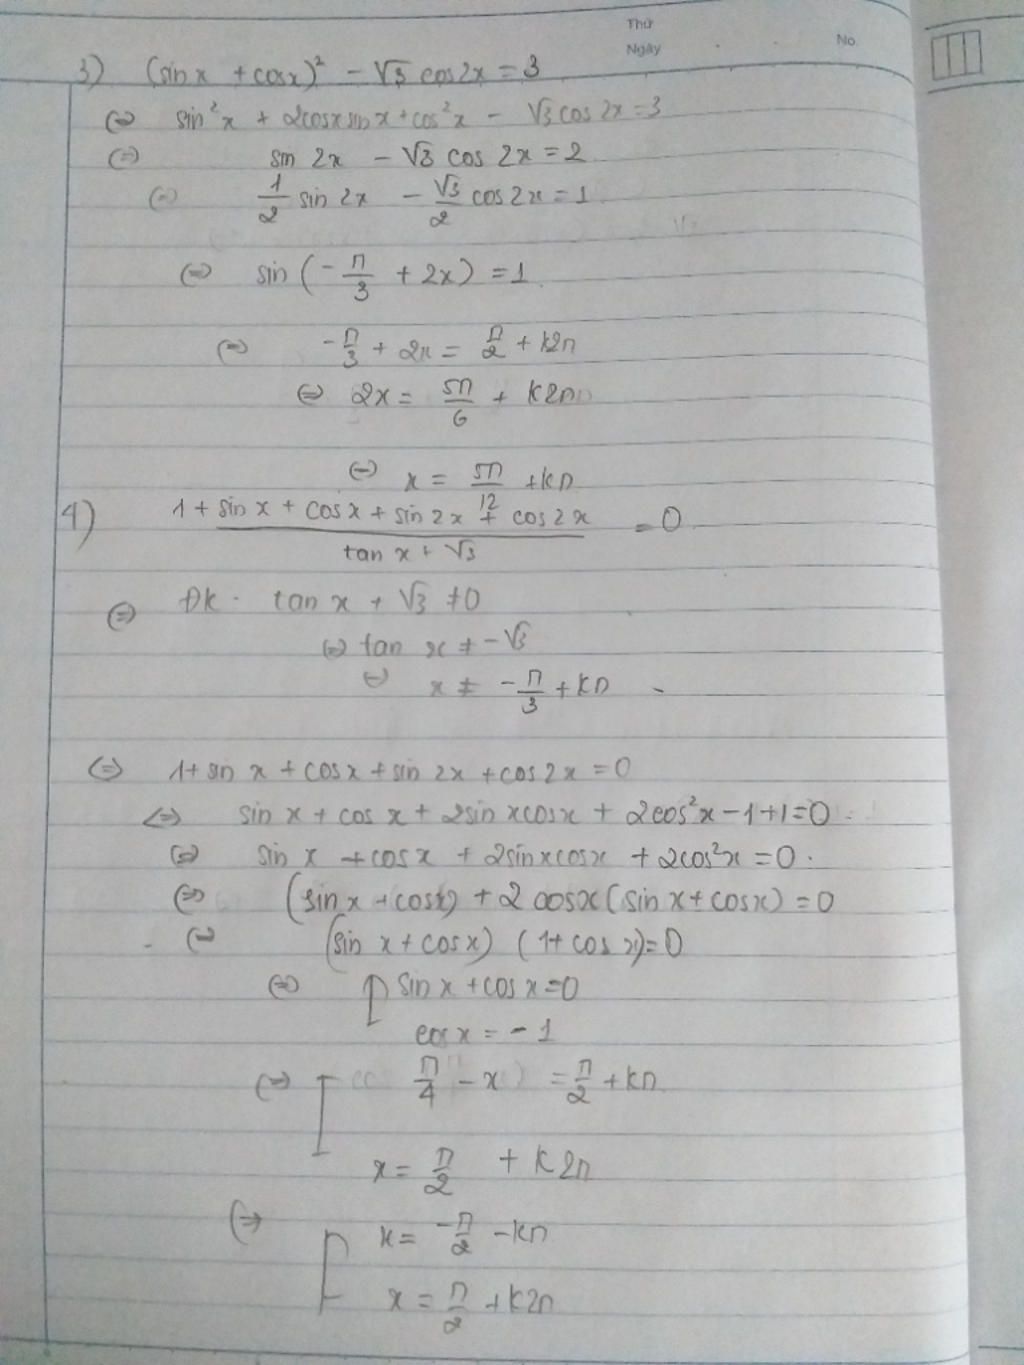 Thứ
Ngày
No.
3) (sin x + cos x)² - √3 cos 2x = 3
⇔ sin²x + 2cosx sin x + cos²x - √3 cos 2x = 3
⇔ sin 2x - √3 cos 2x = 2
⇔ 1/2 sin 2x - √3/2 cos 2x = 1
⇔ sin (-π/3 + 2x) = 1
⇔ -π/3 + 2x = π/2 + k2π
⇔ 2x = 5π/6 + k2π
⇔ x = 5π/12 + kπ
4) (1 + sin x + cos x + sin 2x + cos 2x)/(tan x + √3) = 0
⇔ ĐK. tan x + √3 ≠ 0
⇔ tan x ≠ -√3
⇔ x ≠ -π/3 + kπ
⇔ 1 + sin x + cos x + sin 2x + cos 2x = 0
⇔ sin x + cos x + 2sin x cos x + 2cos²x - 1 + 1 = 0
⇔ sin x + cos x + 2sin x cos x + 2cos²x = 0
⇔ (sin x + cos x) + 2 cos x (sin x + cos x) = 0
⇔ (sin x + cos x) (1 + cos x) = 0
⇔ [ sin x + cos x = 0
cos x = -1
⇔ [ π/4 - x = π/2 + kπ
x = π/2 + k2π
⇔ [ x = -π/2 - kπ
x = π/2 + k2π